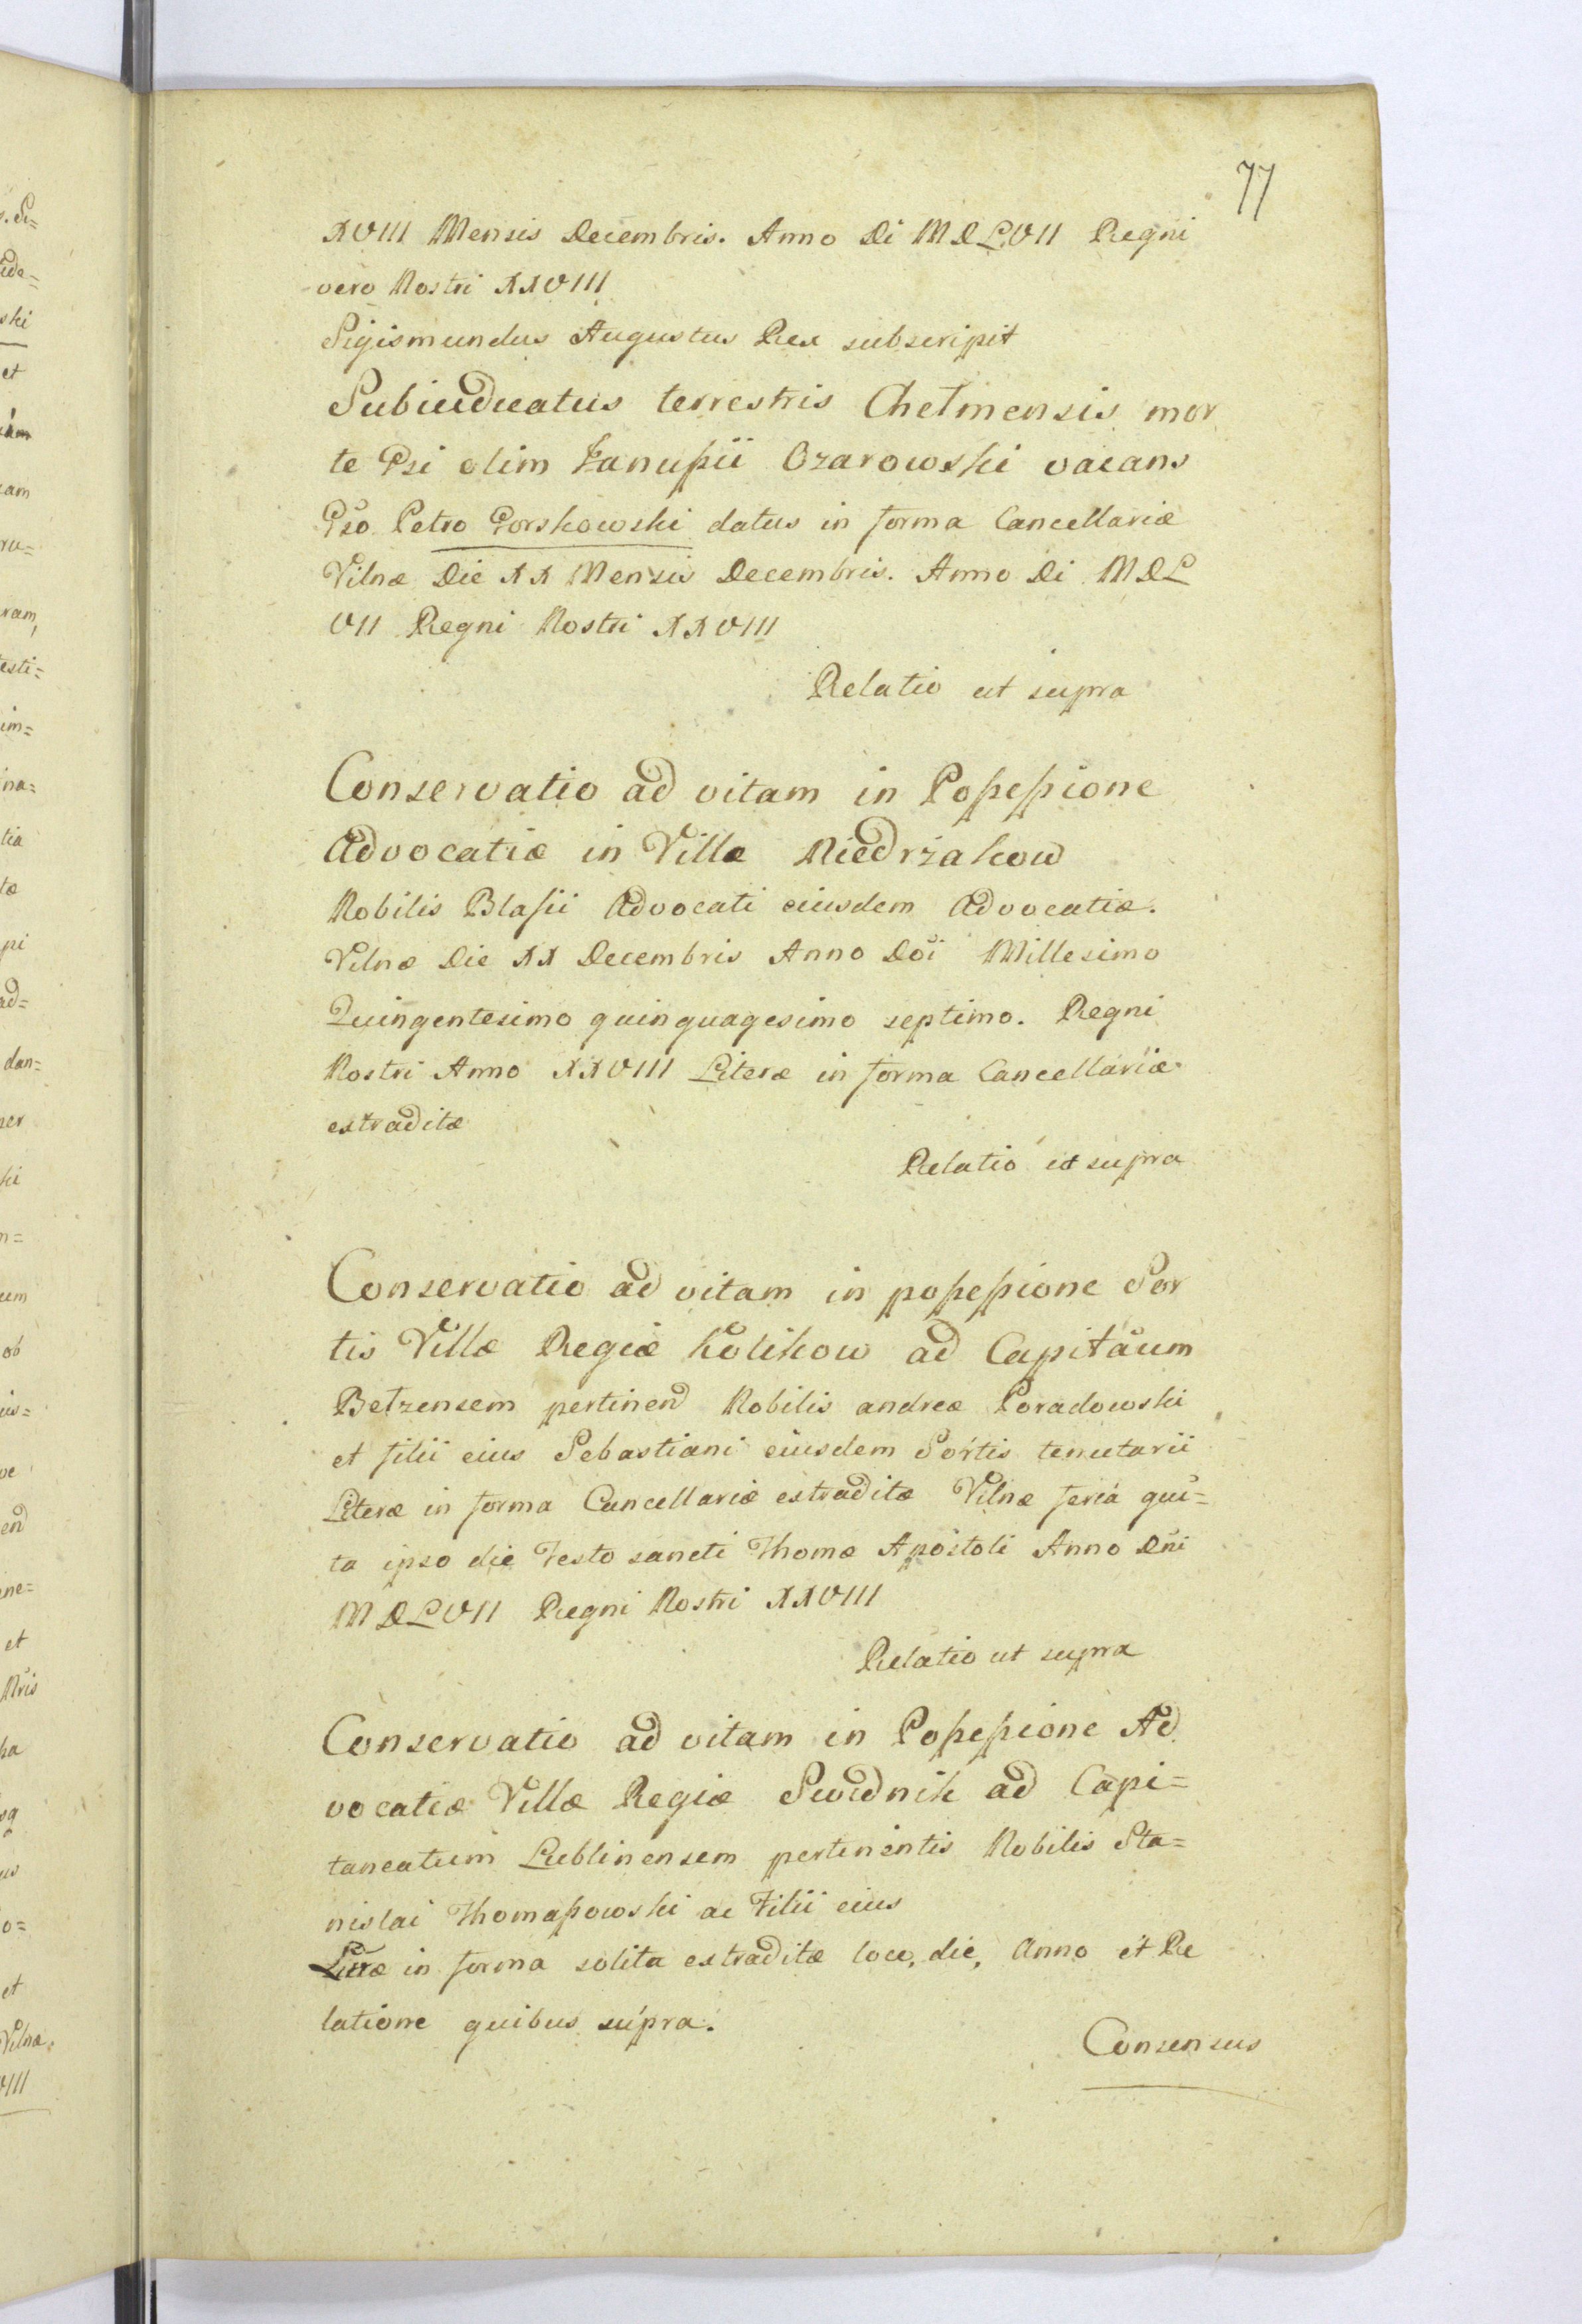 77
XVIII Mensis Decembris. Anno Di MDLVII Regni
vero Nostri XXVIII
Sigismundus Augustus Rex subscripit
Subiudicatus terrestris Chelmensis mor
te Gsi olim Ozarowski vacans
Gso Petro Gorskowski datus in forma Cancellariæ
Vilnæ Die XX Mensis Decembris. Anno Di MDL
VII Regni Nostri XXVIII
Relatio ut supra
Conservatio ad vitam in Possessione
Advocatiæ in Villa Niedrzakow
Nobilis Blasii Advocati eiusdem Advocatiæ.
Vilnæ Die XX Decembris Anno Doi Millesimo
Quingentesimo quinquagesimo septimo. Regni
Nostri Anno XXVIII Literæ in forma Cancellariæ
extraditæ
Relatio ut supra
Conservatio ad vitam in possessione Sor
tis Villæ Regiæ Kolikow ad Capitaum
Betzensem pertinend Nobilis andreæ Poradowski
et filii eius Sebastiani eiusdem Sortis tenutarii
Literæ in forma Cancellariæ extraditæ Vilnæ feria qui=
ta ipso die Festo sancti Thomæ Apostoli Anno Dni
MDLVII Regni Nostri XXVIII
Relatio ut supra
Conservatio ad vitam in Possessione Ad
vocatiæ Villæ Regiæ Swidnik ad Capi=
taneatum Lublinensem pertinentis Nobilis Sta=
nislai Thomassowski ac Filii eius
Lræ in forma solita extraditæ loco, die, Anno et Re
latione quibus supra.
Consensus